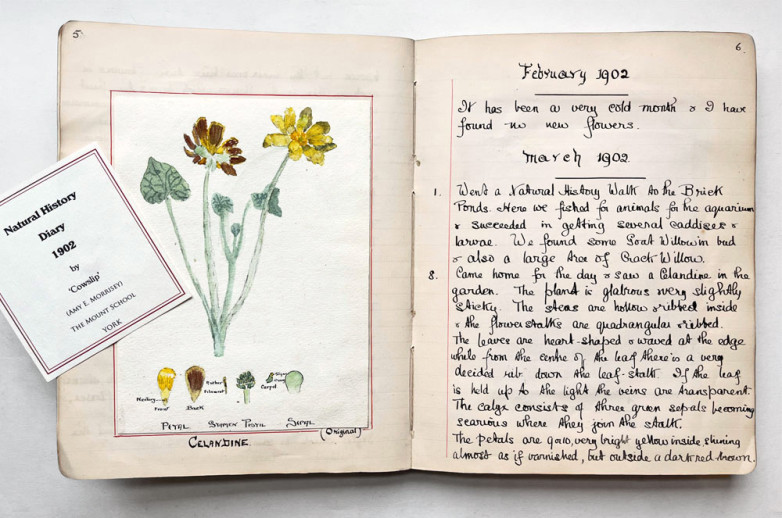 5
Natural History
Diary
1902
by
'Cowslip'
(AMY E. MORRISEY)
THE MOUNT SCHOOL
YORK
Front
Back
Anther
Filament
Carpel
PETAL STAMEN PISTIL SEPAL
CELANDINE.
(Original)
6.
February 1902
It has been a very cold month & I have
found no new flowers.
March 1902.
1. Went a Natural History Walk to the Brick
Ponds. Here we fished for animals for the aquarium
& succeeded in getting several caddises &
larvae. We found some Goat Willow in bud
& also a large tree of Crack Willow.
8. Came home for the day & saw a Celandine in the
garden. The plant is glabrous very slightly
sticky. The stems are hollow & ribbed inside
& the flowerstalks are quadrangular & ribbed.
The leaves are heart-shaped & waved at the edge
while from the centre of the leaf there is a very
decided rib down the leaf-stalk. If the leaf
is held up to the light the veins are transparent.
The calyx consists of three green sepals becoming
scarious where they join the stalk.
The petals are 9 or 10, very bright yellow inside, shining
almost as if varnished, but outside a dark red brown.